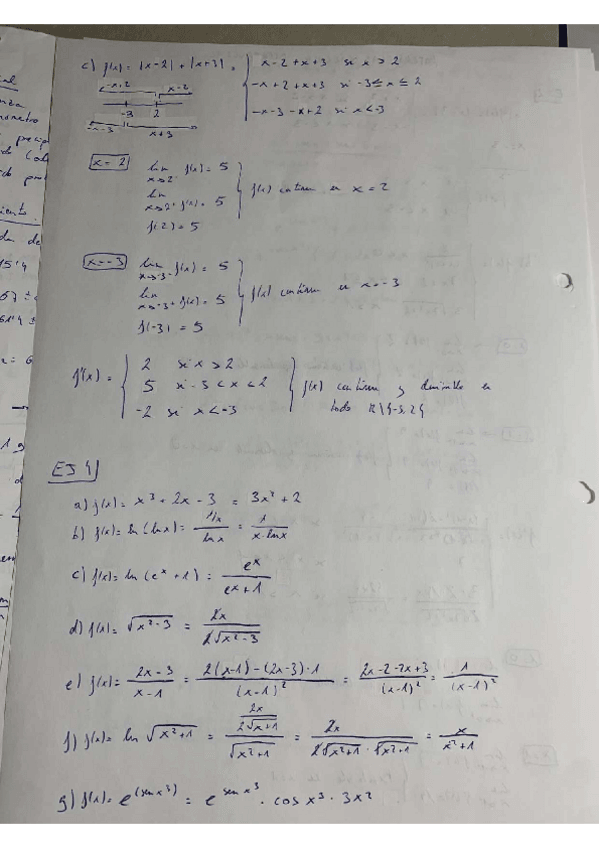 c) f(x) = |x-2| + |x+3| = { x-2+x+3 si x > 2
-x+2+x+3 si -3≤x≤2
-x-3-x+2 si x<-3
-x+2 x-2
-3 2
-x-3 x+3
x=2 lim x→2⁻ f(x) = 5
lim x→2⁺ f(x) = 5 } f(x) continua en x=2
f(2) = 5
x=-3 lim x→-3⁻ f(x) = 5
lim x→-3⁺ f(x) = 5 } f(x) continua en x=-3
f(-3) = 5
f'(x) = { 2 si x>2
5 si -3<x<2 } f(x) continua y derivable en
-2 si x<-3 todo R\{-3,2}
EJ 4
a) f(x) = x³ + 2x - 3 = 3x² + 2
b) f(x) = ln(lnx) = (1/x)/(lnx) = 1/(x·lnx)
c) f(x) = ln(eˣ+1) = eˣ/(eˣ+1)
d) f(x) = √(x²-3) = 2x/(2√(x²-3))
e) f(x) = (2x-3)/(x-1) = (2(x-1)-(2x-3)·1)/(x-1)² = (2x-2-2x+3)/(x-1)² = 1/(x-1)²
f) f(x) = ln √(x²+1) = (2x/(2√(x+1)))/√(x²+1) = 2x/(2√(x²+1)·√(x²+1)) = x/(x²+1)
g) f(x) = e^(sen x³) = e^sen x³ · cos x³ · 3x²